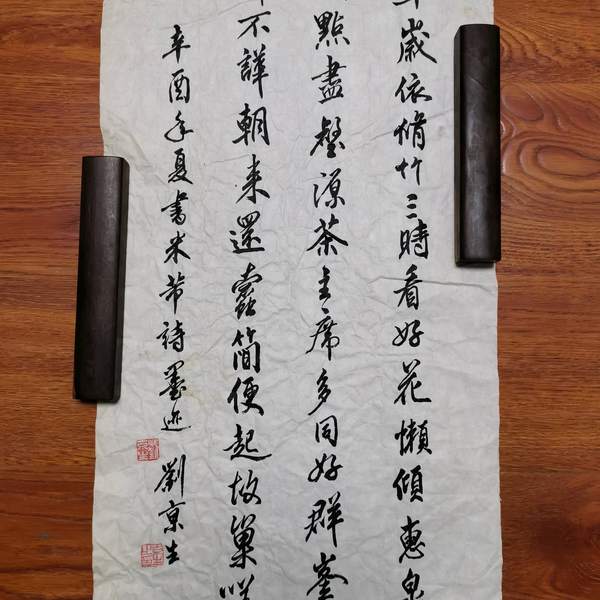 歲依脩竹三時看好花懶傾惠泉
點盡壑源茶主席多同好群峯
不譁朝来還蠹簡便起故巢
辛酉年夏書米芾詩墨迹 劉京生